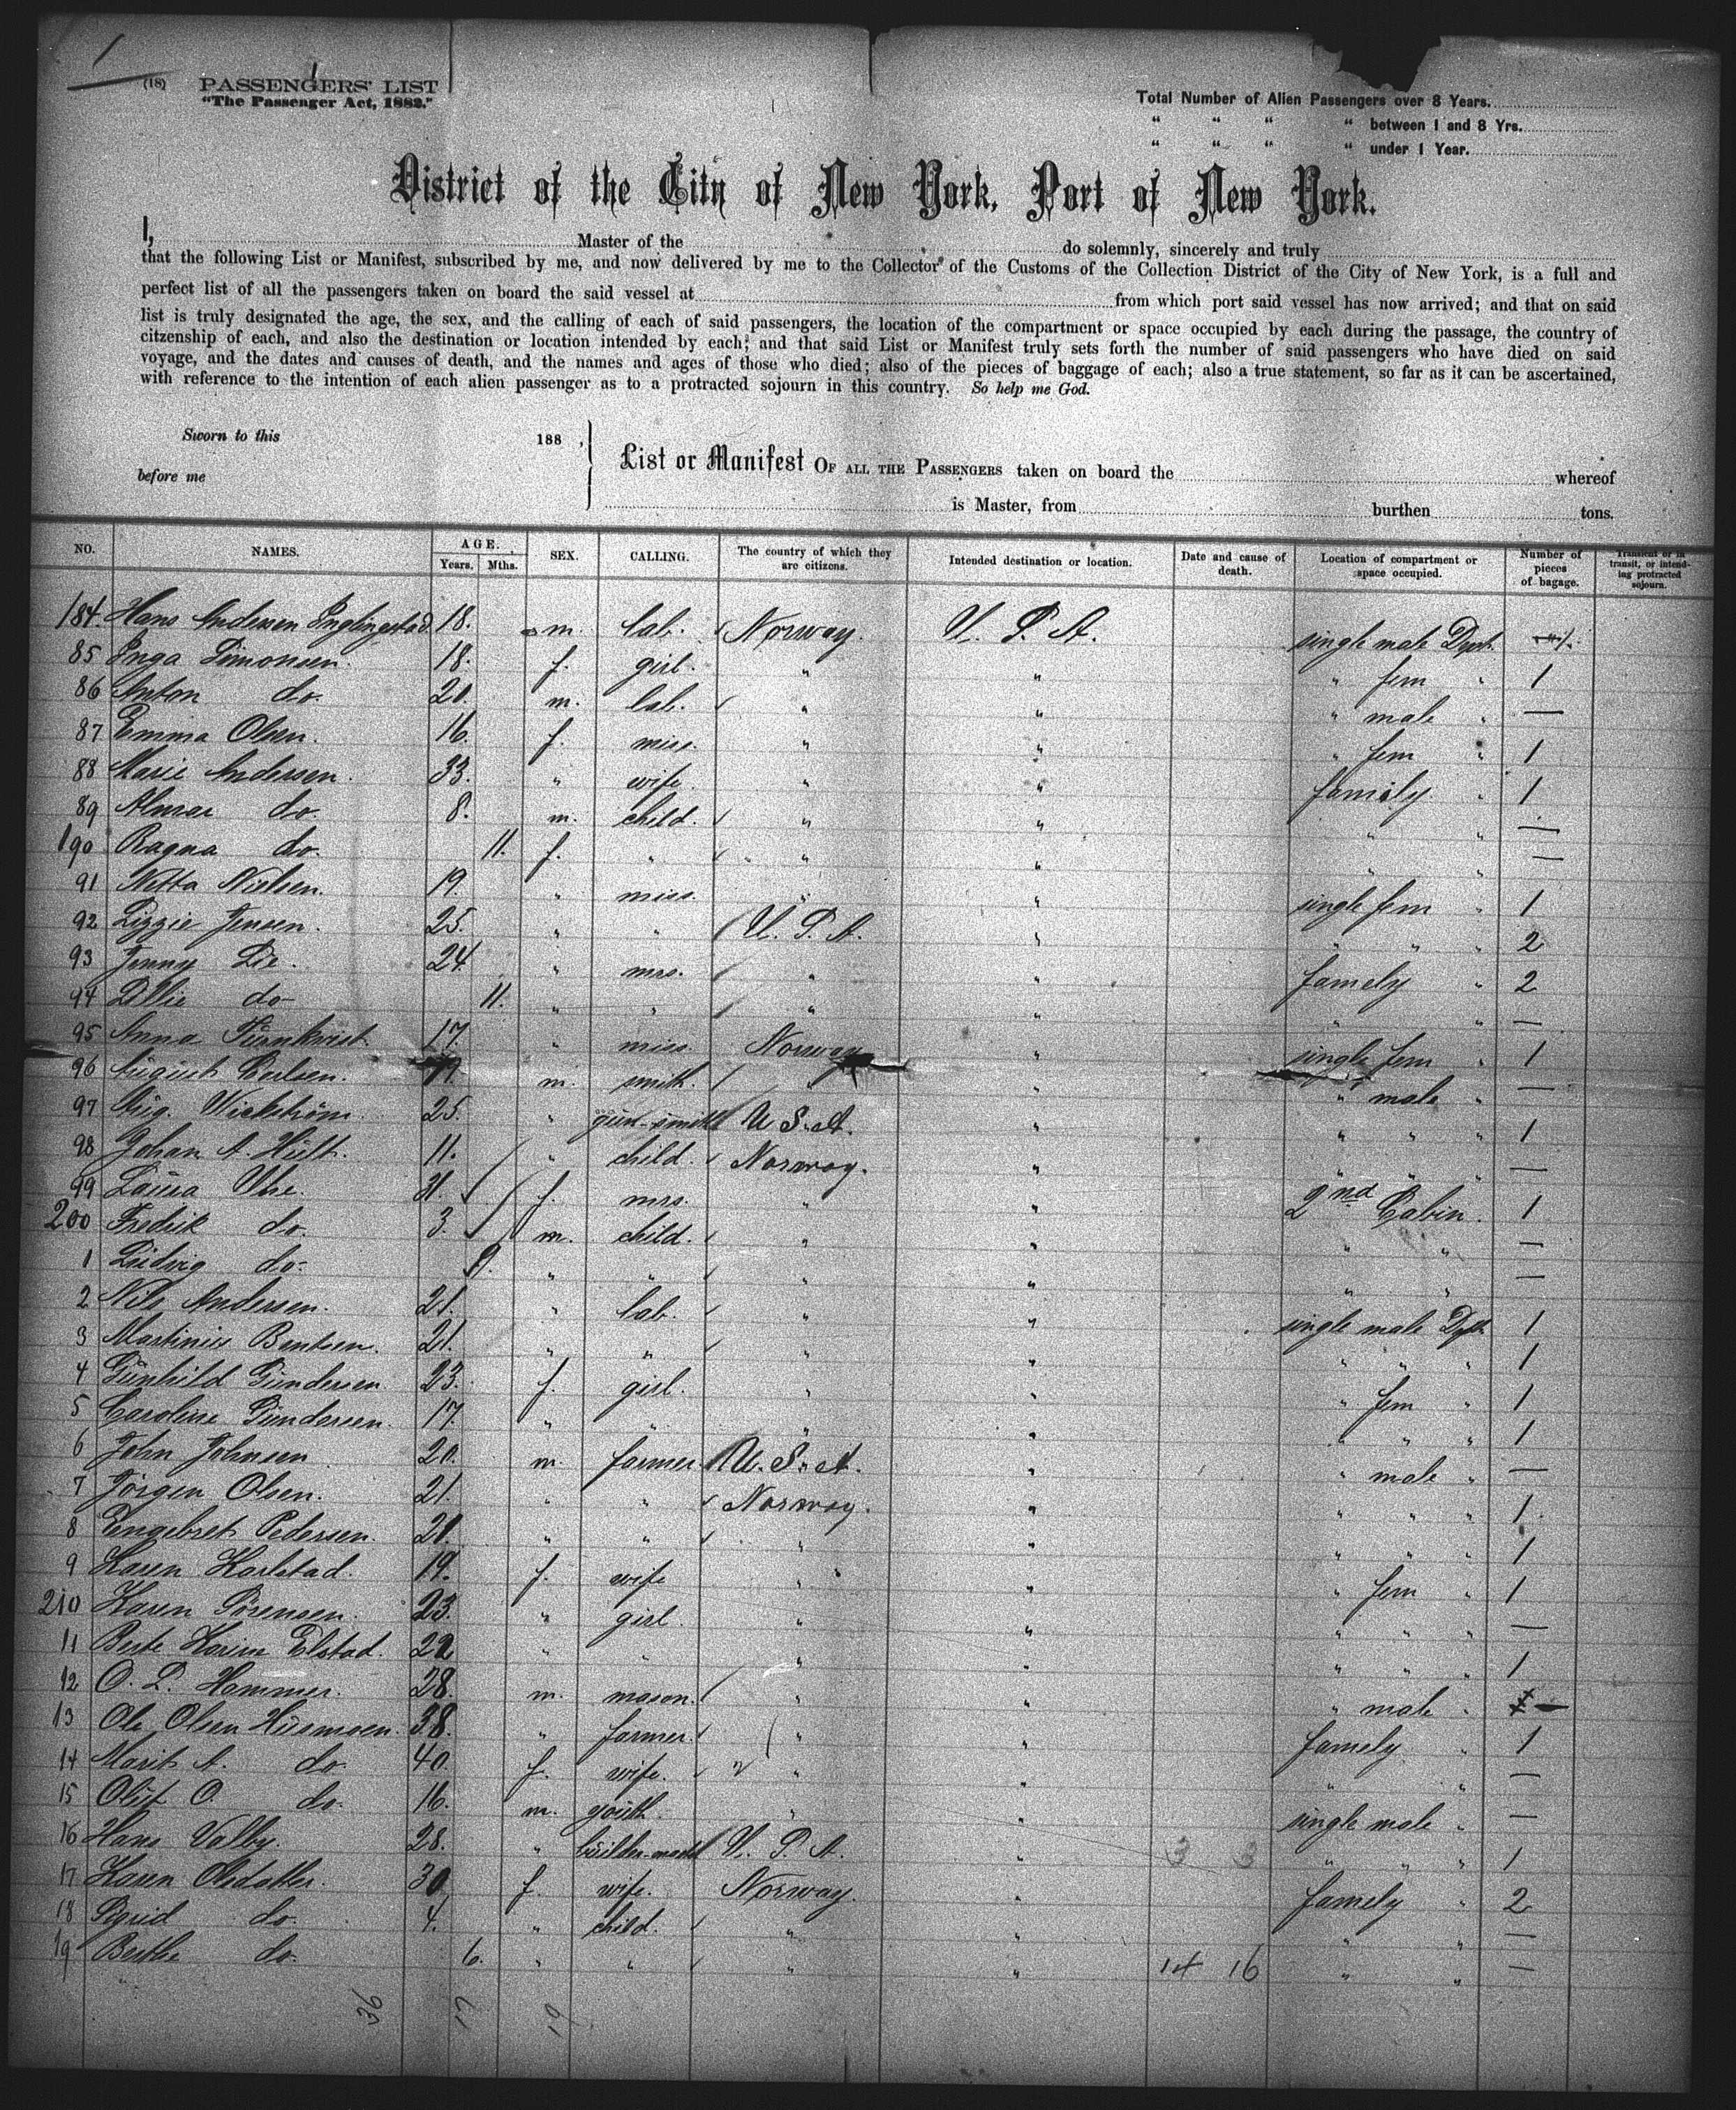 1
(18) PASSENGERS' LIST
"The Passenger Act, 1882."
Total Number of Alien Passengers over 8 Years.
" " " " between 1 and 8 Yrs.
" " " " under 1 Year.
District of the City of New York, Port of New York.
I, Master of the do solemnly, sincerely and truly
that the following List or Manifest, subscribed by me, and now delivered by me to the Collector of the Customs of the Collection District of the City of New York, is a full and
perfect list of all the passengers taken on board the said vessel at from which port said vessel has now arrived; and that on said
list is truly designated the age, the sex, and the calling of each of said passengers, the location of the compartment or space occupied by each during the passage, the country of
citzenship of each, and also the destination or location intended by each; and that said List or Manifest truly sets forth the number of said passengers who have died on said
voyage, and the dates and causes of death, and the names and ages of those who died; also of the pieces of baggage of each; also a true statement, so far as it can be ascertained,
with reference to the intention of each alien passenger as to a protracted sojourn in this country. So help me God.
Sworn to this 188 ,
before me
List or Manifest OF ALL THE PASSENGERS taken on board the whereof
is Master, from burthen tons.
NO. NAMES. AGE. Years. Mths. SEX. CALLING. The country of which they are citizens. Intended destination or location. Date and cause of death. Location of compartment or space occupied. Number of pieces of bagage. Transient or in transit, or intending protracted sojourn.
184. Hans Andersen 18. m. lab. Norway. U. S. A. single male Dpt.
85 Inga Simonsen. 18. f. girl. " " " fem " 1
86 Anton do. 20. m. lab. " " " male " —
87 Emma Olsen. 16. f. miss. " " " fem " 1
88 Marie Andersen. 33. " wife. " " family " 1
89 do. 8. m. child. " " " " —
190 Ragna do. 11. f. " " " " " —
91 Netta Nielsen. 19. " miss. " " single fem " 1
92 Lizzie Jensen. 25. " " U. S. A. " " " " 2
93 Jenny Lie. 24. " mrs. " " famely " 2
94 Lillie do 11. " " " " " " —
95 Anna 17. " miss. Norway " single fem " 1
96 August Carlsen. 19. m. smith. " " " male " —
97 Aug. Wickström. 25. " gun-smith U.S.A. " " " " 1
98 Johan A. Hult. 11. " child. Norway. " " " " —
99 Laura 31. f. mrs. " " 2nd Cabin. 1
200 Fredrik do. 3. m. child. " " " " —
1 Ludvig do. 9. " " " " " " —
2 Nils Andersen. 21. " lab. " " single male Dpt. 1
3 Martinius Bentsen. 21. " " " " " " " 1
4 Gunhild Gundersen. 23. f. girl. " " " fem " 1
5 Caroline Gundersen. 17. " " " " " " " 1
6 John Johnsen 20. m. farmer U.S.A. " " male " —
7 Jörgen Olsen. 21. " " Norway. " " " " 1.
8 Engebret Pedersen. 21. " " " " " " " 1
9 Karen Karlstad. 19. f. wife " " " fem " 1
210 Karen Sörensen. 23. " girl. " " " " " —
11 Berte Karine Elstad. 22 " " " " " " " 1
12 O. L. Hammer. 28. m. mason. " " " male " —
13 Ole Olsen Husmoen. 38. " farmer. " " famely " 1
14 Marit A. do 40. f. wife. " " " " —
15 Oluf O. do. 16. m. youth. " " single male " —
16 Hans Valby. 28. " U. S. A. " 3 3 " " " 1
17 Karen Olsdatter. 30 f. wife. Norway. " famely " 2
18 Sigrid do. 4. " child. " " " " —
19 Berthe do. 6. " " " " 14 16 " " —